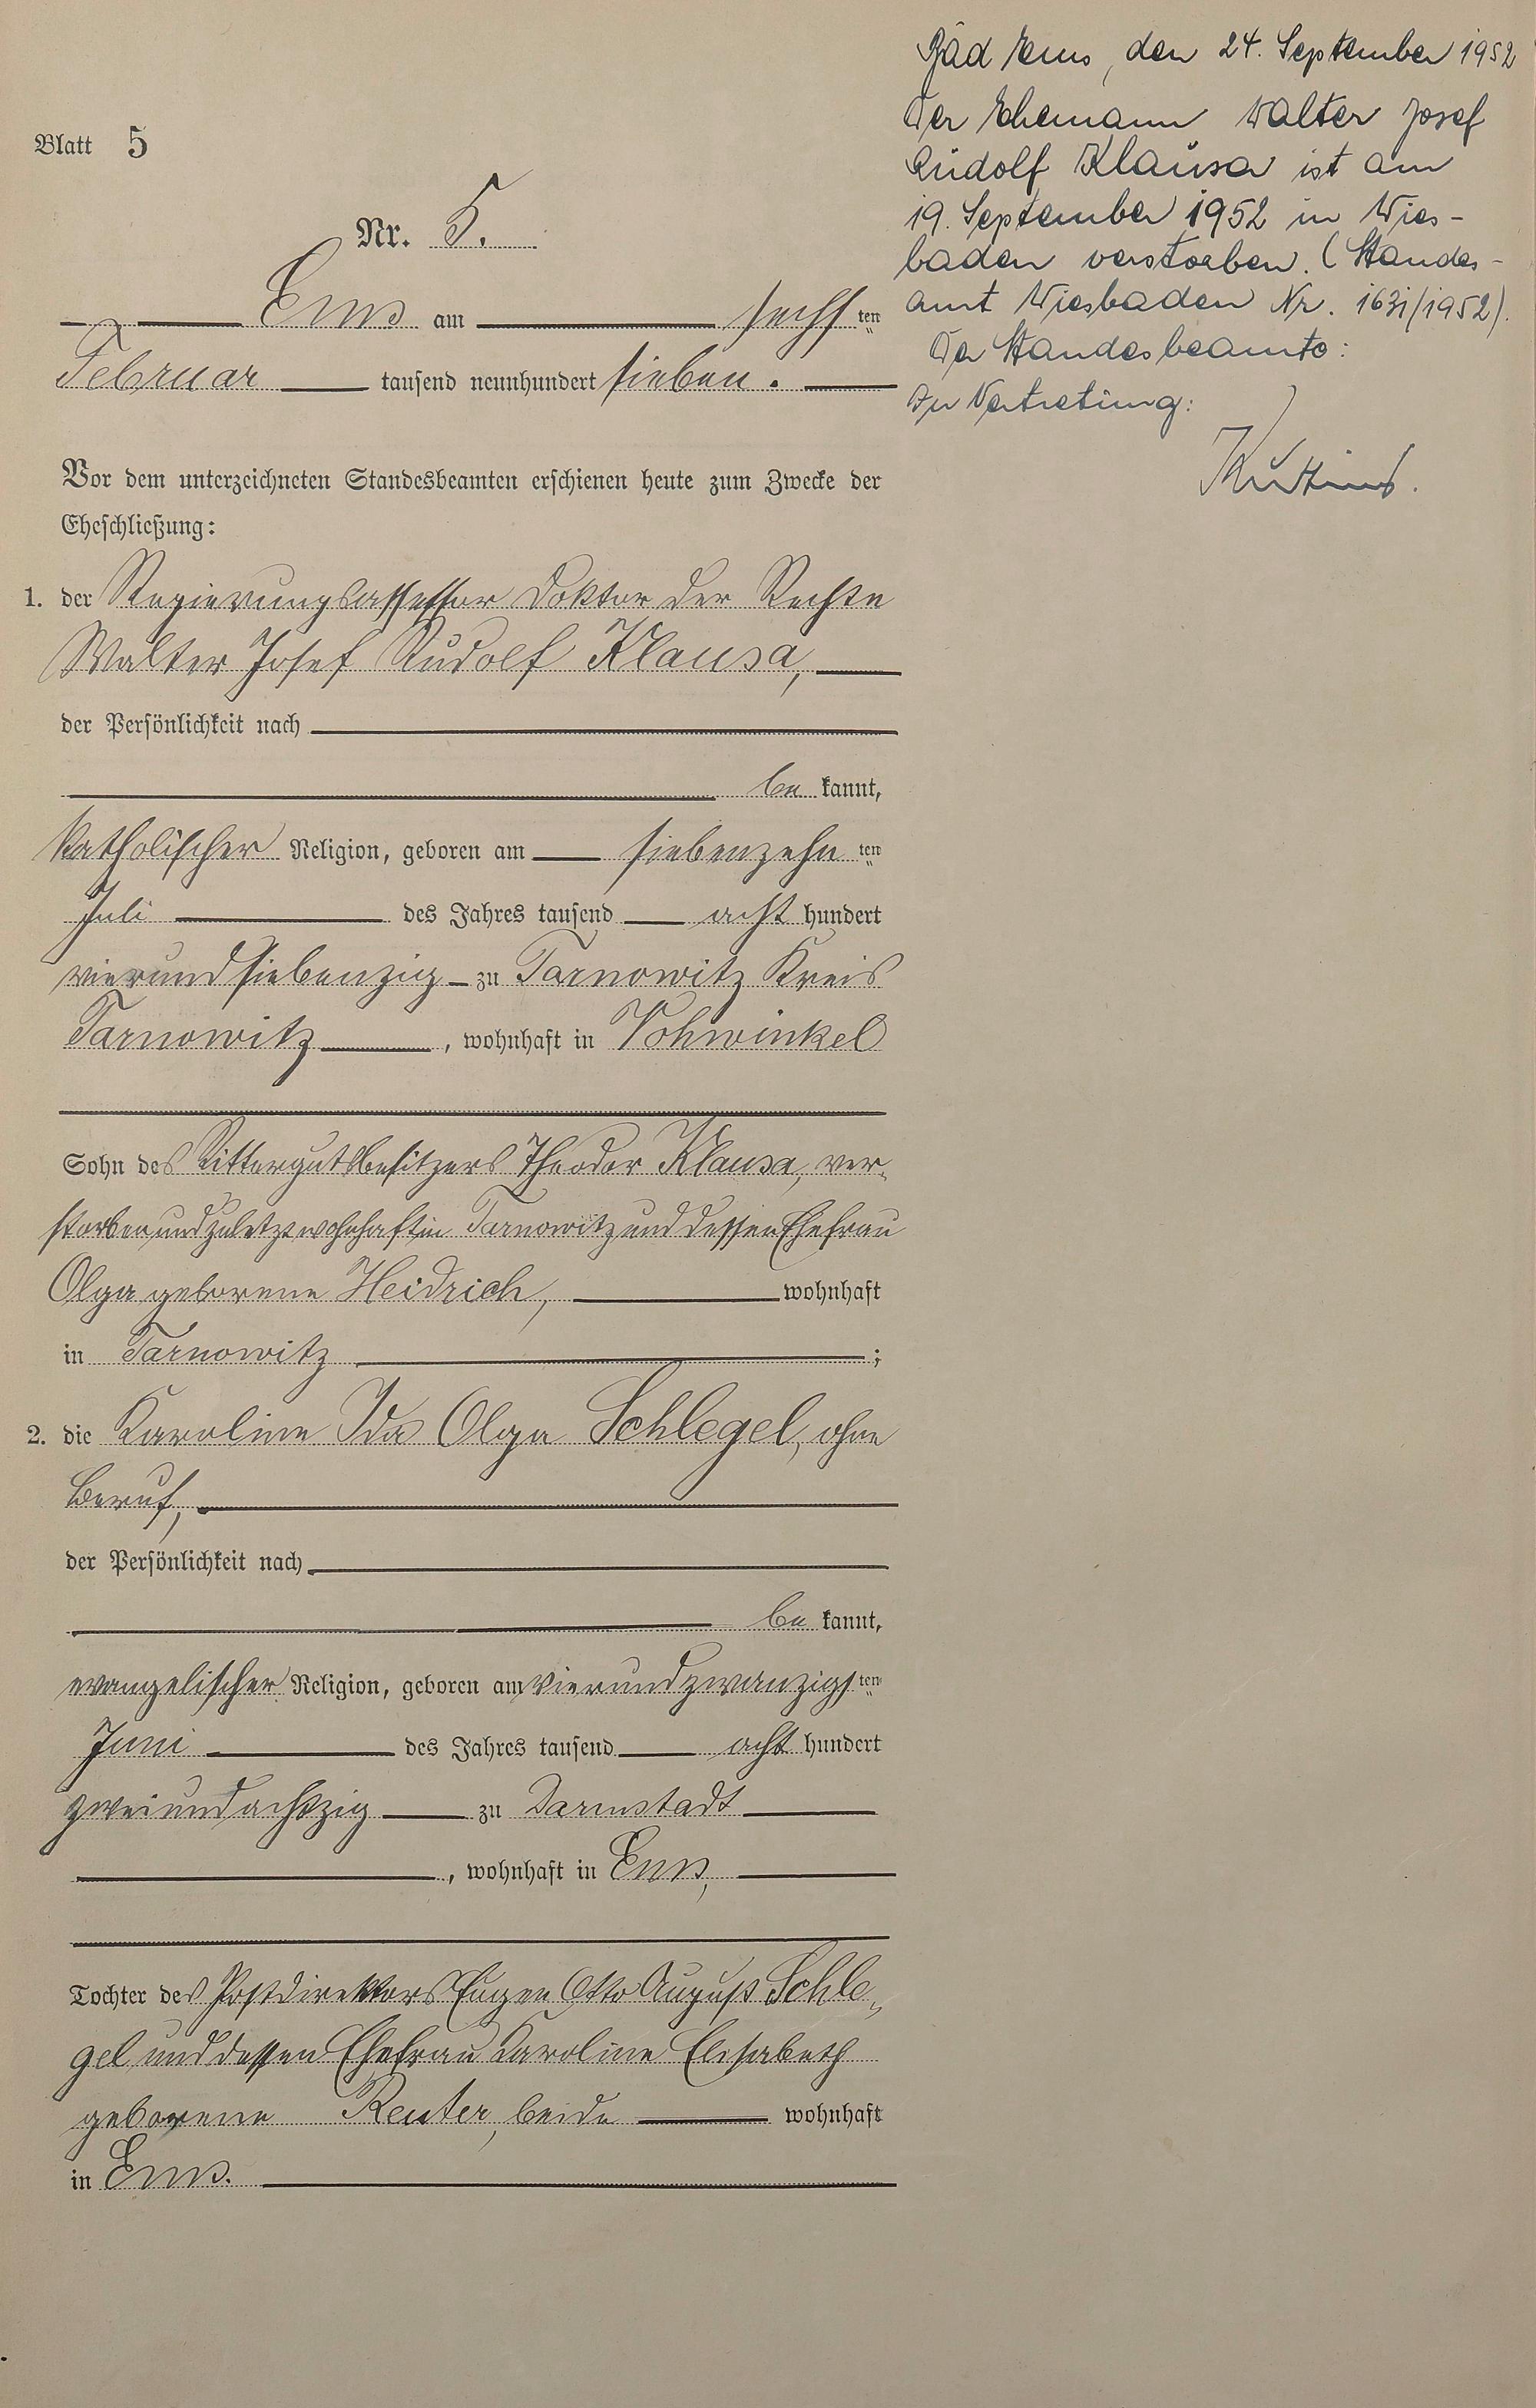 Blatt 5
Nr. 5.
Ems am sechsten
Februar tausend neunhundert sieben.
Vor dem unterzeichneten Standesbeamten erschienen heute zum Zwecke der
Eheschließung:
1. der Regierungsassessor Doktor der Rechte
Walter Josef Rudolf Klausa,
der Persönlichkeit nach
be kannt,
katholischer Religion, geboren am siebenzehn ten
Juli des Jahres tausend acht hundert
vierundsiebenzig zu Tarnowitz Kreis
Tarnowitz, wohnhaft in Vohwinkel
Sohn des Rittergutsbesitzers Theodor Klausa, ver-
storben und zuletzt wohnhaft in Tarnowitz und dessen Ehefrau
Olga geborene Heidrich, wohnhaft
in Tarnowitz ;
2. die Karoline Ida Olga Schlegel, ohne
Beruf,
der Persönlichkeit nach
be kannt,
evangelischer Religion, geboren am vierundzwanzigsten
Juni des Jahres tausend acht hundert
zweiundachtzig zu Darmstadt
, wohnhaft in Ems,
Tochter des Postdirektors Eugen Otto August Schle-
gel und dessen Ehefrau Karoline Elisabeth
geborene Reuter, beide wohnhaft
in Ems.
Bad Ems, den 24. September 1952
Der Ehemann Walter Josef
Rudolf Klausa ist am
19. September 1952 in Wies-
baden verstorben. (Standes-
amt Wiesbaden Nr. 1631/1952).
Der Standesbeamte:
In Vertretung: